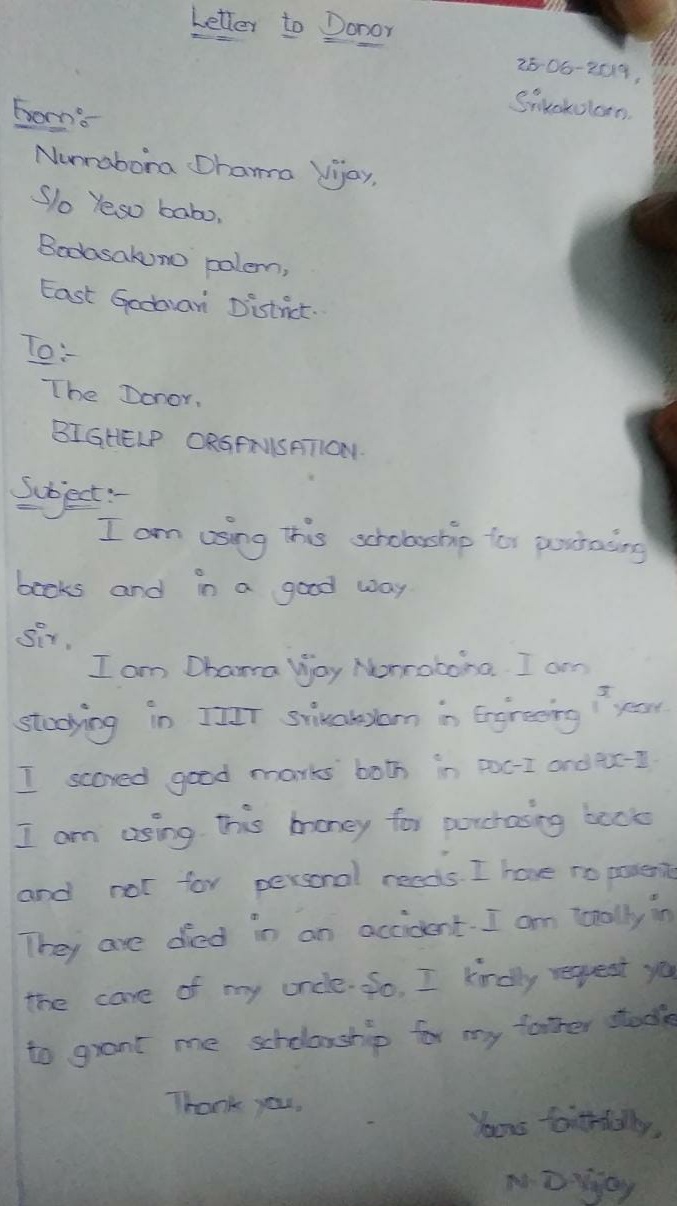 Letter to Donor
25-06-2019,
Srikakulam.
From:-
Nunnaboina Dharma Vijay,
S/o Yesu babu,
Badasakurru palem,
East Godavari District.
To:-
The Donor,
BIGHELP ORGANISATION.
Subject:-
I am using this scholarship for purchasing
books and in a good way.
Sir,
I am Dharma Vijay Nunnaboina. I am
studying in IIIT Srikakulam in Engineering I year.
I scored good marks both in PUC-I and PUC-II.
I am using this money for purchasing books
and not for personal needs. I have no parents
They are died in an accident. I am totally in
the care of my uncle. So, I kindly request you
to grant me scholarship for my further studie
Thank you,
Yours faithfully,
N. D. Vijay